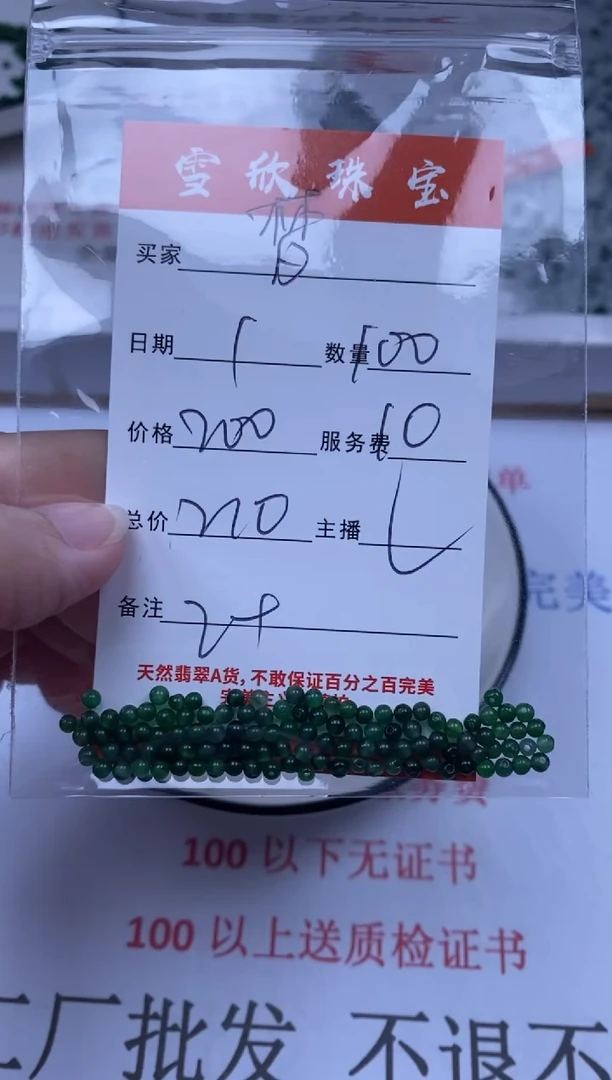 雪欣珠宝
买家
日期 1 数量 100
价格 200 服务费 10
总价 210 主播
备注
天然翡翠A货,不敢保证百分之百完美
单
完美
100以下无证书
100以上送质检证书
工厂批发 不退不